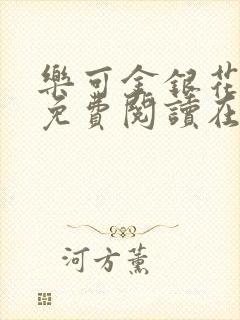 樂可金銀花
免費閱讀在
河方薰